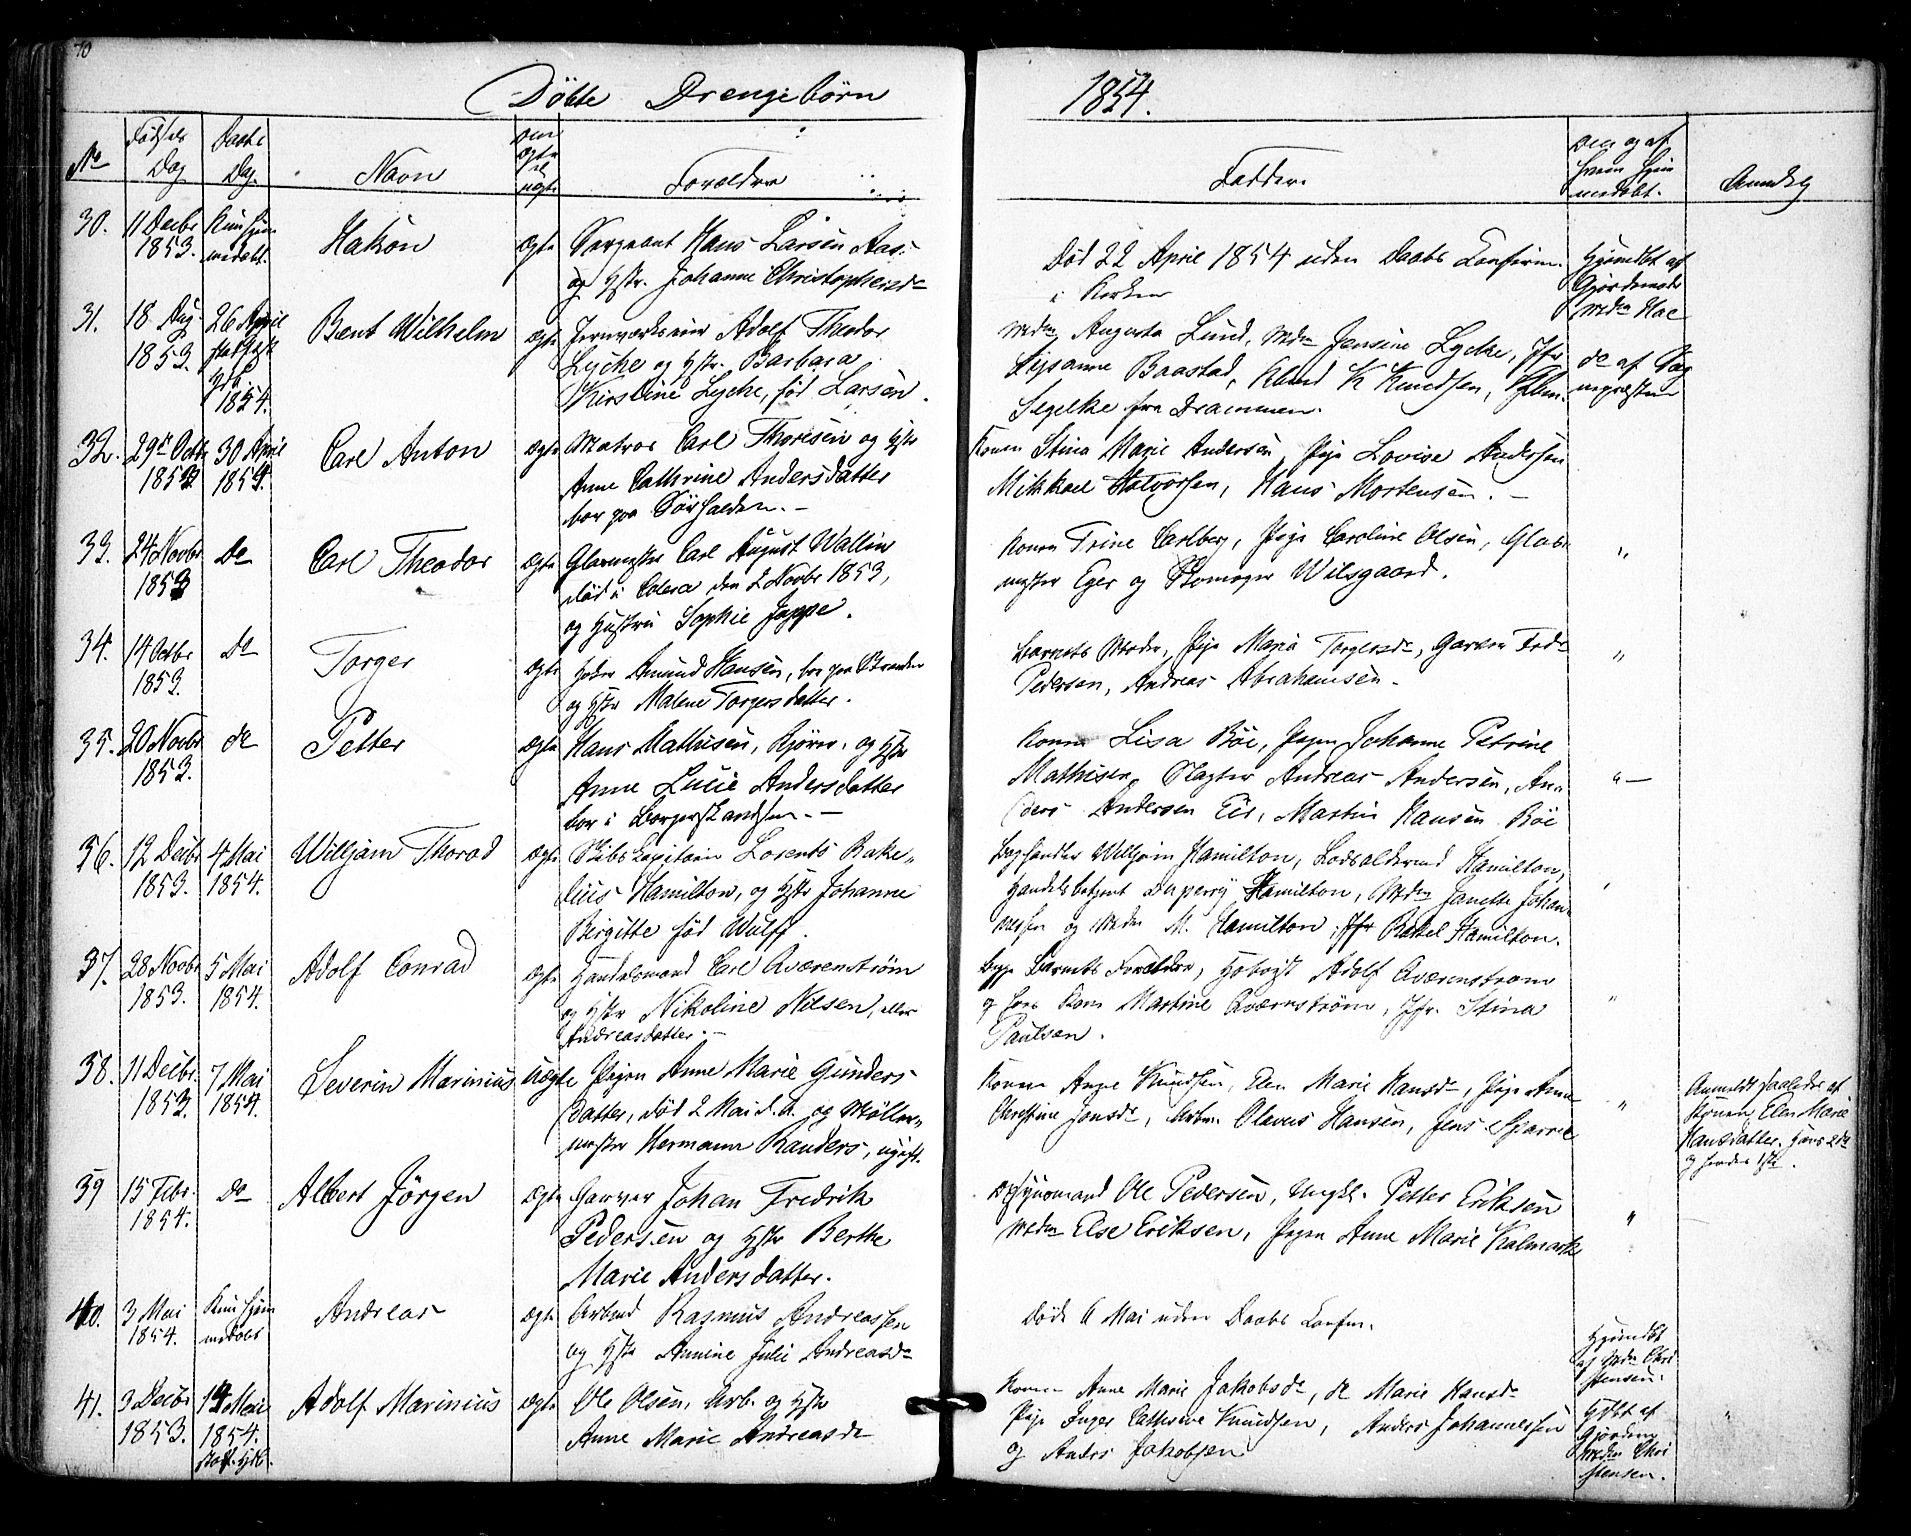 70
Döbte Drengebörn 1854.
No Födsels Dag Daabs Dag. Navn Om ægte el. uægte Forældre Faddere Om og af hvem hjemmedøbt. Anmkg
30. 11 Decbr 1853. Kun hjemmedøbt. Hakon Ægte Sergeant Hans Larsen Aas
og Hstr. Johanne Christophersdr
Död 22 April 1854 uden Daabs Confirm.
i Kirken
Hjemdbt af Gjordemoder Mdm
31. 18 Aug. 1853. 26 April 1854. Bent Wilhelm Ægte Jernværkseier Adolf Theodor
Lycke og Hstr. Barbara
Kirstine Lycke, föd Larsen.
Mdm Augusta Lund, Mdm Jensine Lycke, Jfr
Baastad, K Knudsen,
Segelke fra Drammen.
do af Sognepræsten
32. 29de Octbr 1853 30 April 1854. Carl Anton Ægte Matros Carl Thoresen og Hstr
Anne Cathrine Andersdatter
bor paa Sörhalden.-
Konen Stina Marie Andersen, Pige Lovise Andersen
Mikkael Halvorsen, Hans Mortensen.-
33. 24 Novbr 1853 Do Carl Theodor Ægte Glarmester Carl August Wallin
död i Colera den 2 Novbr 1853,
og Hustru Sophie Jappe.
Konen Trine Carlberg, Pige Caroline Olsen, Glar-
mester Eger og Skomager Wilsgaard.
"
34. 14 Octbr 1853. Do Torger Ægte Amund Hansen, bor paa Stranden
og Hstr Malene Torgersdatter.
Barnets Moder, Pige Maria Torgersdr, Garver Fredr
Pedersen, Andreas Abrahamsen.
"
35. 20 Novbr 1853. do Petter Ægte Hans Mathisen, Kjörer, og Hstr
Anne Lucie Andersdatter
bor i Borgerskandsen.-
Konen Lisa Böe, Pigen Johanne Petrine
Mathisen, Slagter Andreas Andersen, An-
ders Andersen Eie, Martin Hansen Böe
"-
36. 12 Decbr 1853. 4 Mai 1854. Willjam Thorod Ægte Skibs Capitain Lorents Bake-
lius Hamilton, og Hstr Johanne
Birgitte föd Wulff.
Boghandler Willjam Hamilton, Lodsoldermd Hamilton,
Handelsbetjent Duperry Hamilton, Mdm Janette Johan-
nessen og Mdm M. Hamilton, Jfr Rakel Hamilton.
37. 28 Novbr 1853. 5 Mai 1854. Adolf Conrad Ægte Handelsmand Carl Qværenström
og Hstr Nikoline Nilsen, eller
Andreasdatter.-
Begge Barnets Forældre, Adolf Qværenström
og hans Kone Martine Qværnström, Jfr. Stina
Paulsen.
"
38. 11 Decbr 1853. 7 Mai 1854. Severin Marinius Uægte Pigen Anne Marie Gunders-
datter, död 2 Mai d.A. og Möller-
mester Hermann Randers, ugift.
Konen Anne Knudsen, Elen Marie Hansdr, Pige Anne
Christine Jonsdr, Arbm. Olavus Hansen, Jens Sparre
"
Anmeldt saaledes af
Konen Elen Marie
Hansdatter. Hans 2det
og hendes 1ste.
39 15 Febr. 1854. Do Albert Jörgen Ægte Garver Johan Fredrik
Pedersen og Hstr Berthe
Marie Andersdatter.
Ole Pedersen, Ungkl. Petter Eriksen
Mdm Else Eriksen, Pigen Anne Marie Kalmark
"
40. 3 Mai 1854. Kun hjemmedöbt Andreas Ægte Arbmd Rasmus Andreassen
og Hstr Annine Julie Andreasdr
Döde 6 Mai uden Daabs Confm.
Hjemdöbt af Mdm Christensen.
41. 3 Decbr 1853. 14 Mai 1854. Adolf Marinius Ægte Ole Olsen, Arb. og Hstr
Anne Marie Andreasdr
Konen Anne Marie Jakobsdr, do Marie Hansdr
Pige Inger Cathrine Knudsen, Anders Johannessen
og Anders Jakobsen
Hjdbt af Gjordem. Mdm Christensen.